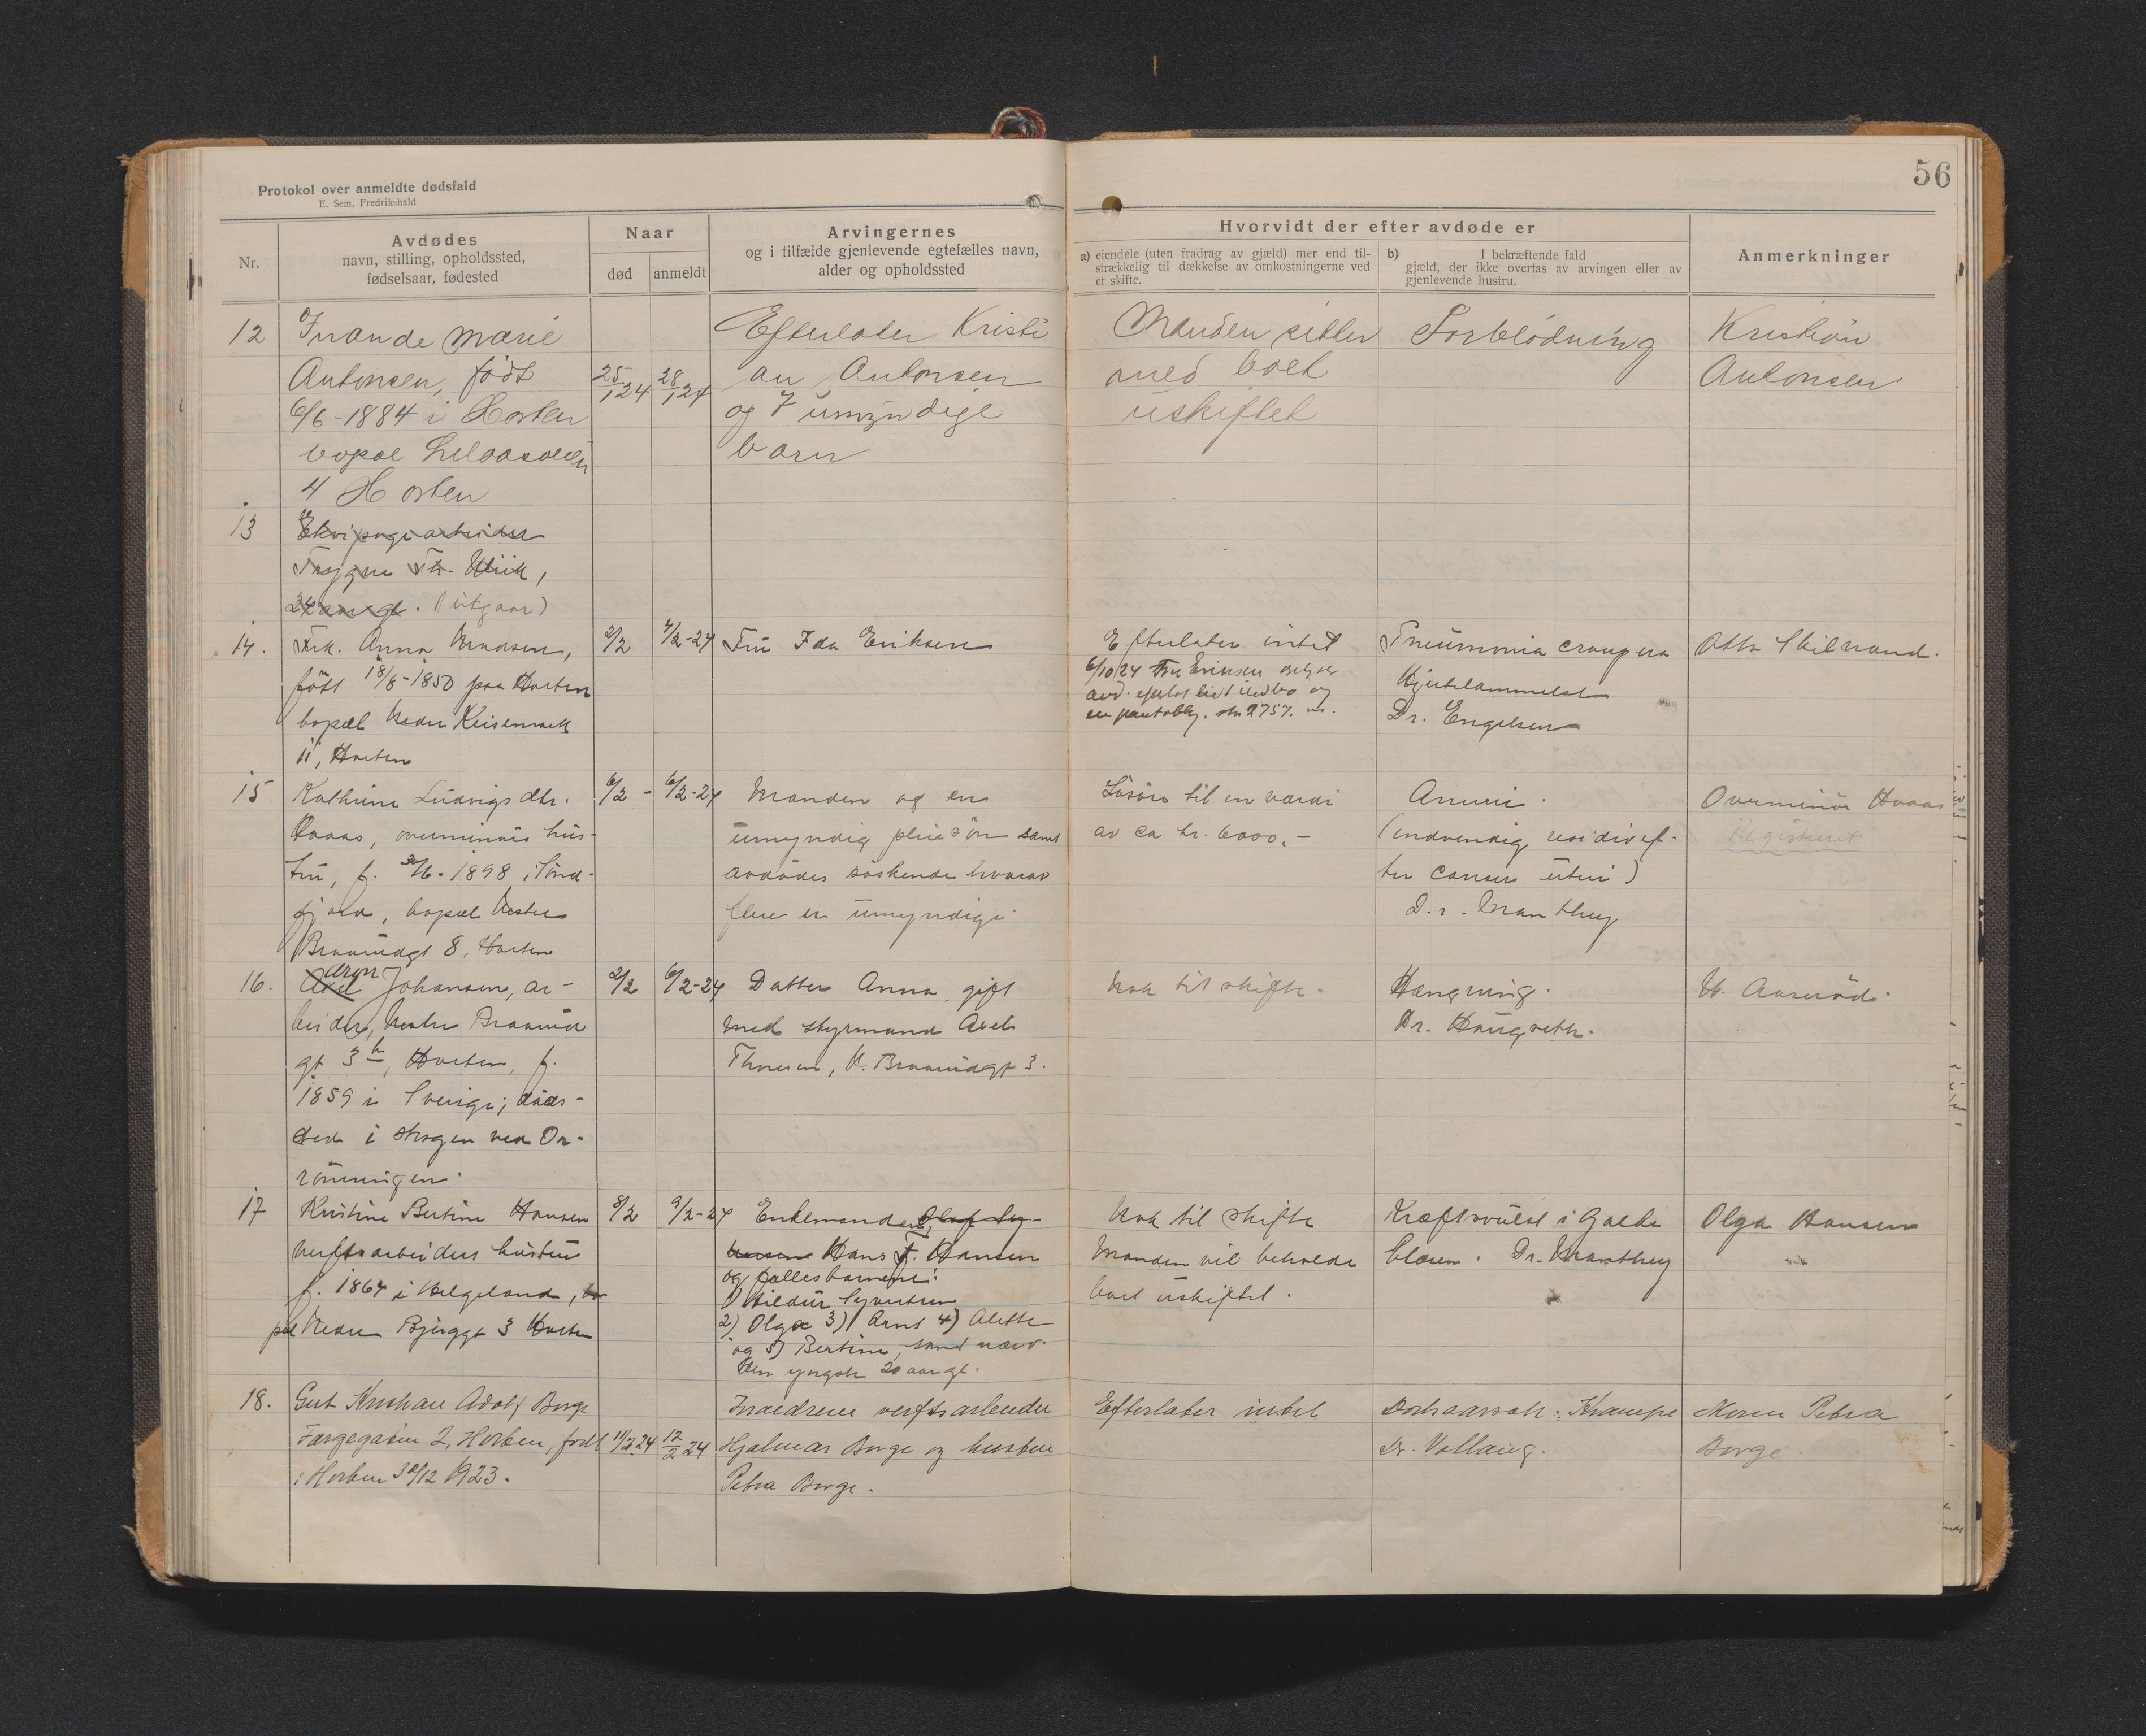 56
Protokol over anmeldte dødsfald
E. Sem, Fredrikshald
Nr.
Avdødes
navn, stilling, opholdssted,
fødselsaar, fødested
Naar
død
anmeldt
Arvingernes
og i tilfælde gjenlevende egtefælles navn,
alder og opholdssted
Hvorvidt der efter avdøde er
a) eiendele (uten fradrag av gjæld) mer end til-
strækkelig til dækkelse av omkostningerne ved
et skifte.
b) I bekræftende fald
gjæld, der ikke overtas av arvingen eller av
gjenlevende hustru.
Anmerkninger
12
Marie
Antonsen, født
6/6-1884 i Horten
bopæl
4 Horten
25/1 24
28/1 24
Efterlater Kristi
an Antonsen
og 7 umyndige
barn
Manden sitter
med boet
uskiftet
Forblødning
Kristian
Antonsen
13
Ekvipagearbeider
Trygve Th. Wiik,
34 aar gl. (utgaar)
14.
Frk. Anna Madsen,
født 18/8-1850 paa Horten
bopæl Nedre Keisemark
11, Horten
2/2
4/2-24
Fru Ida Eriksen
Efterlater intet
6/10 24 Fru Eriksen opl. at
avd. efterlot litt indbo og
en pantobl. stor 2757. kr.
Pneumonia crouposa
Hjertelammelse
Dr. Engelsen
Otto Skilrand.
15
Kathrine Ludvigsdtr.
Hovas, overminørs hus-
tru, f. 30/6-1898 i Sønd-
fjord, bopæl Vestre
Braarudgt 8, Horten
6/2 -
6/2-24
Manden og en
umyndig pleiesøn samt
avdødes søskende hvorav
flere er umyndige
Løsøre til en værdi
av ca kr. 6000.-
Anuri.
(indvendig residiv ef-
ter cancer uteri)
Dr. Manthey
Overminør Hovas
Registrert
16.
Axel Aron Johansen, ar-
beider, Vestre Braarud
gt 3 b, Horten, f.
1859 i Sverige; døds-
sted i skogen ved Or-
rønningen.
2/2
6/2-24
Datter Anna, gift
med styrmand Axel
Thoresen, V. Braarudgt 3.
Nok til skifte.
Hængning.
Dr. Haugseth.
17
Kristine Bertine Hansen
verftsarbeiders hustru
f. 1867 i Helgeland, bo-
pæl Nedre Bjerggt 3 Horten
8/2
9/2-24
Enkemanden, Olaf Sy-
Hans J. Hansen
og fællesbarnene:
1) Hildur Syvertsen
2) Olga 3) Arnt 4) Alette
og 5) Bertine, samt nævn.
den yngste 20 aar gl.
Nok til skifte
Manden vil beholde
boet uskiftet.
Kræftsvulst i Galde
blæren. Dr. Manthey
Olga Hansen
18.
Gut Kristian Adolf Borge
Færgegaten 2, Horten, født
i Horten 30/12 1923.
11/2 24
12/2 24
Forældrene verftsarbeider
Hjalmar Borge og hustru
Petra Borge.
Efterlater intet
Dødsaarsak: Krampe
Dr. Vollaug.
Moren Petra
Borge.